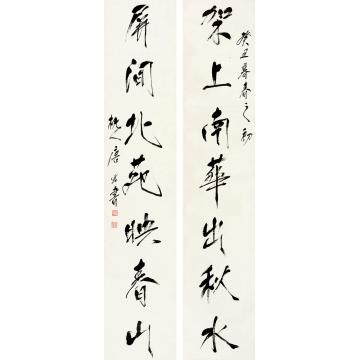 癸丑暮春之初
架上南華出秋水
屏间北苑映春山
唐
書